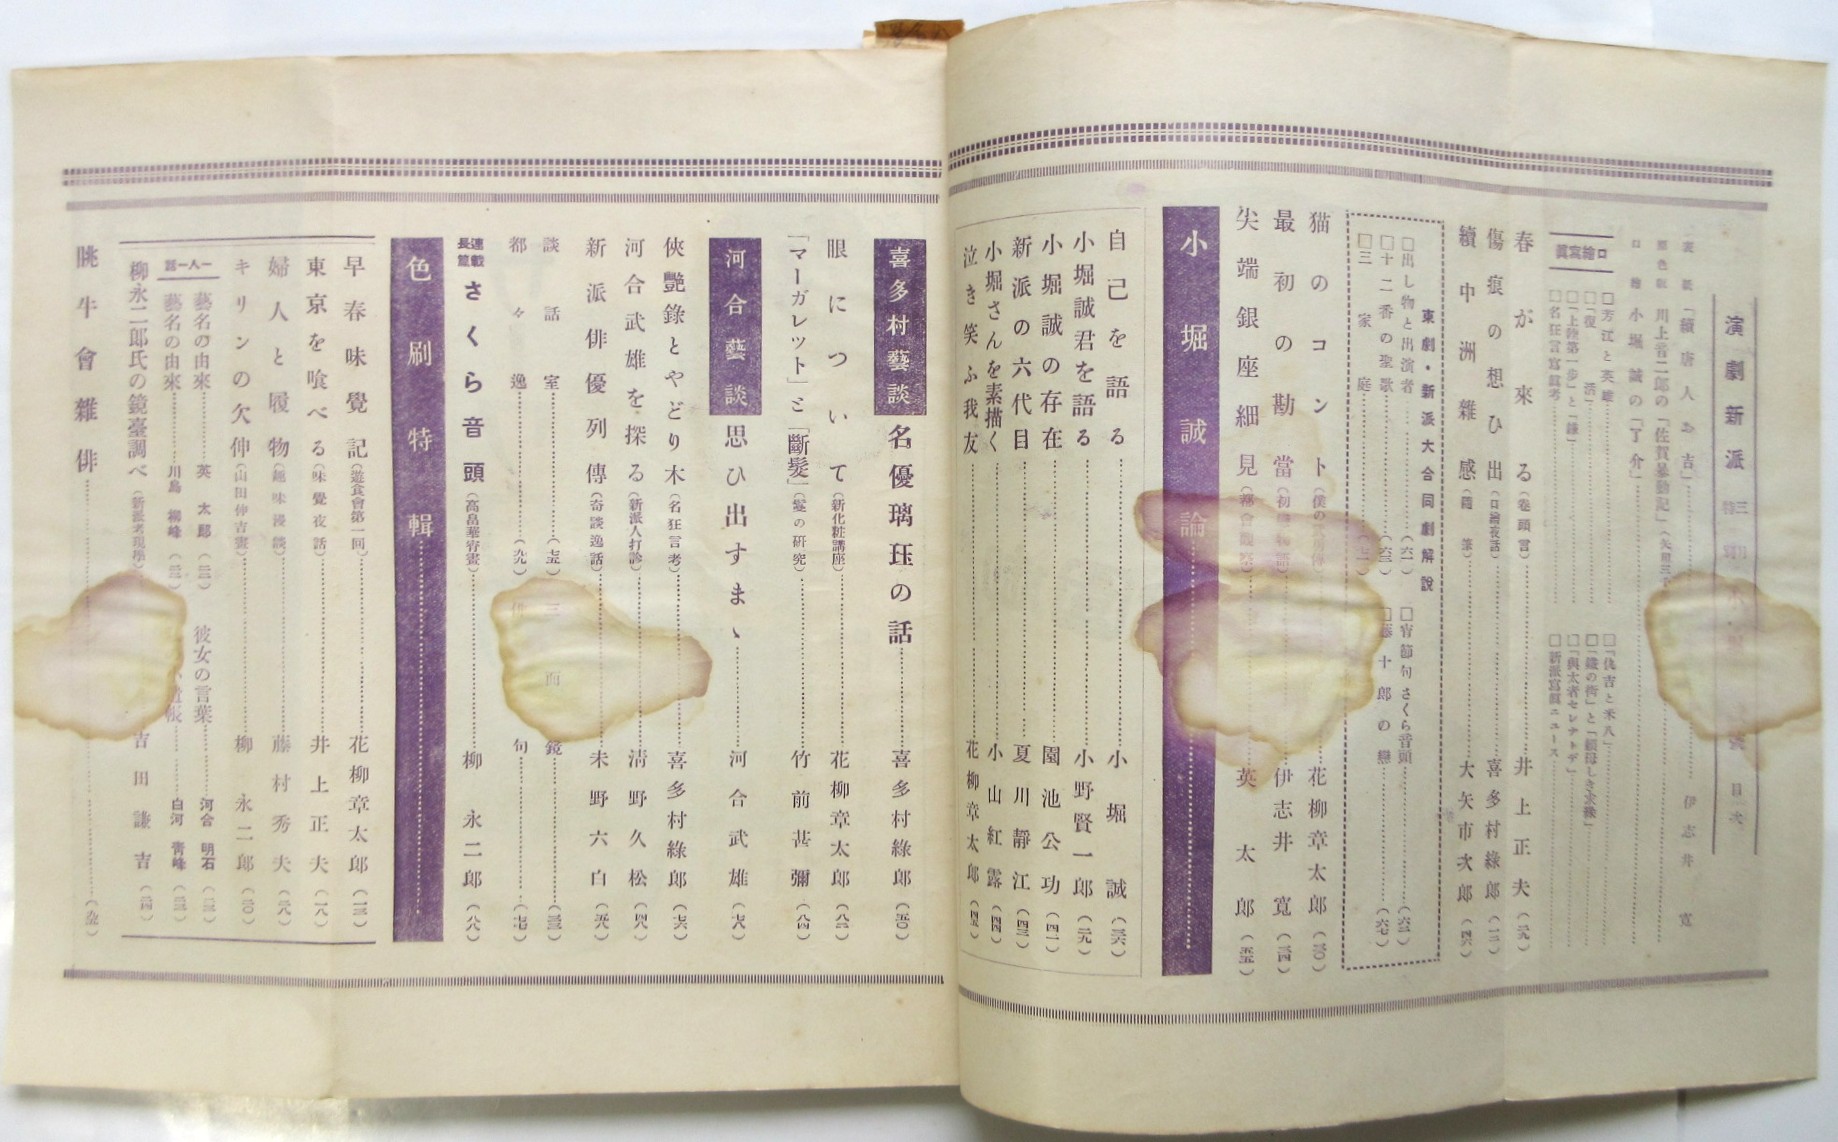 演劇新派 目次
表紙「續唐人お吉」 伊志井寛
川上音二郎の「佐賀暴動記」
口繪 小堀誠の「了介」
口繪寫眞
□芳江と英雄
□「復活」
□「上陸第一歩」と「鎌」
□名狂言寫眞考
□「仇吉と米八」
□「與太者セレナーデ」
□新派寫眞ニュース
春が來る(卷頭言) 井上正夫
傷痕の想ひ出(口繪夜話) 喜多村綠郎(一二)
續中洲雜感(隨筆) 大矢市次郎(四六)
東劇・新派大合同劇解說
□出し物と出演者(六一)
□十二番の聖歌
□三家庭
□宵節句さくら音頭
□藤十郎の戀
猫のコント 花柳章太郎(三〇)
最初の勘當 伊志井寛(三四)
尖端銀座細見 英太郎(五五)
小堀誠論
自己を語る 小堀誠(三六)
小堀誠君を語る 小野賢一郎(三九)
小堀誠の存在 園池公功(四一)
新派の六代目 夏川靜江(四三)
小堀さんを素描く 小山紅露(四四)
泣き笑ふ我友 花柳章太郎(四五)
喜多村藝談 名優璃珏の話 喜多村綠郎(五〇)
眼について(新化粧講座) 花柳章太郎(八二)
「マーガレット」と「斷髮」(愛の研究) 竹前甚彌(八四)
河合藝談 思ひ出すまゝ 河合武雄(七八)
俠艷錄とやどり木(名狂言考) 喜多村綠郎(七六)
河合武雄を探る(新派人打診) 淸野久松(四八)
新派俳優列傳(奇談逸話) 未野六白(五八)
談話室(七五)
都々逸(九九)
連載長篇 さくら音頭(高畠華宵畫) 柳永二郎(八八)
色刷特輯
早春味覺記(遊食會第一回) 花柳章太郎(一三)
東京を喰べる(味覺夜話) 井上正夫(一八)
婦人と履物(趣味漫談) 藤村秀夫(二八)
キリンの欠伸(山田伸吉畫) 柳永二郎(二〇)
一人一題
藝名の由來 英太郎
藝名の由來 川島柳峰
彼女の言葉 河合明石
白河靑峰
柳永二郎氏の鏡臺調べ(新派考現學) 吉田謙吉(二四)
眺牛會雜俳